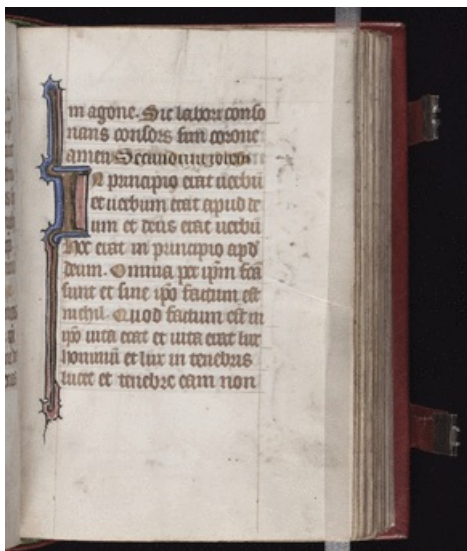 in agone. Sic labori conso
nans consors sim corone
amen Secundum iohan
In principio erat uerbū
et uerbum erat apud de
um et deus erat uerbū
hoc erat in principio apd̄
deum. Omnia per ip̄m fc̄a
sunt et sine ip̄o factum est
nichil. Quod factum est in
ip̄o uita erat et uita erat lux
hominū et lux in tenebris
lucet et tenebre eam non